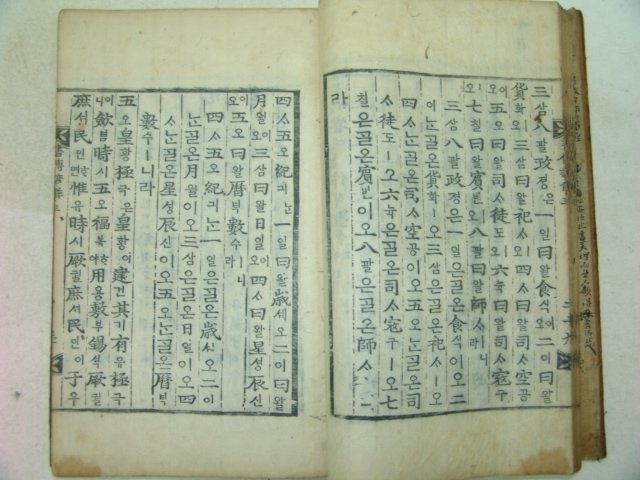 三삼八팔政졍은一일曰왈食식이오二이曰왈
貨화오三삼曰왈祀ᄉᆞㅣ오四ᄉᆞ曰왈司ᄉᆞ空공
이오五오曰왈司ᄉᆞ徒도ㅣ오六육曰왈司ᄉᆞ寇구
ㅣ오七칠曰왈賓빈이오八팔曰왈師ᄉᆞㅣ니라
三삼八팔政졍은一일은ᄀᆞᆯ온食식이오二
이ᄂᆞᆫᄀᆞᆯ온貨화ㅣ오三삼은ᄀᆞᆯ온祀ᄉᆞㅣ오
四ᄉᆞᄂᆞᆫᄀᆞᆯ온司ᄉᆞ空공이오五오ᄂᆞᆫᄀᆞᆯ온司
ᄉᆞ徒도ㅣ오六육은ᄀᆞᆯ온司ᄉᆞ寇구ㅣ오七
칠은ᄀᆞᆯ온賓빈이오八팔은ᄀᆞᆯ온師ᄉᆞㅣ
라
四ᄉᆞ五오紀긔ᄂᆞᆫ一일曰왈歲셰오二이曰왈
月월이오三삼曰왈日일이오四ᄉᆞ曰왈星셩辰신
이오五오曰왈曆녁數수ㅣ니라
四ᄉᆞ五오紀긔ᄂᆞᆫ一일은ᄀᆞᆯ온歲셰오二이
ᄂᆞᆫᄀᆞᆯ온月월이오三삼은ᄀᆞᆯ온日일이오四
ᄉᆞᄂᆞᆫᄀᆞᆯ온星셩辰신이오五오ᄂᆞᆫᄀᆞᆯ온曆녁
數수ㅣ니라
五오皇황極극은皇황이建건其기有유極극
이니斂렴時시五오福복ᄒᆞ야用용敷부錫셕厥궐
庶셔民민ᄒᆞ면惟유時시厥궐庶셔民민이于우
書傳諺解三